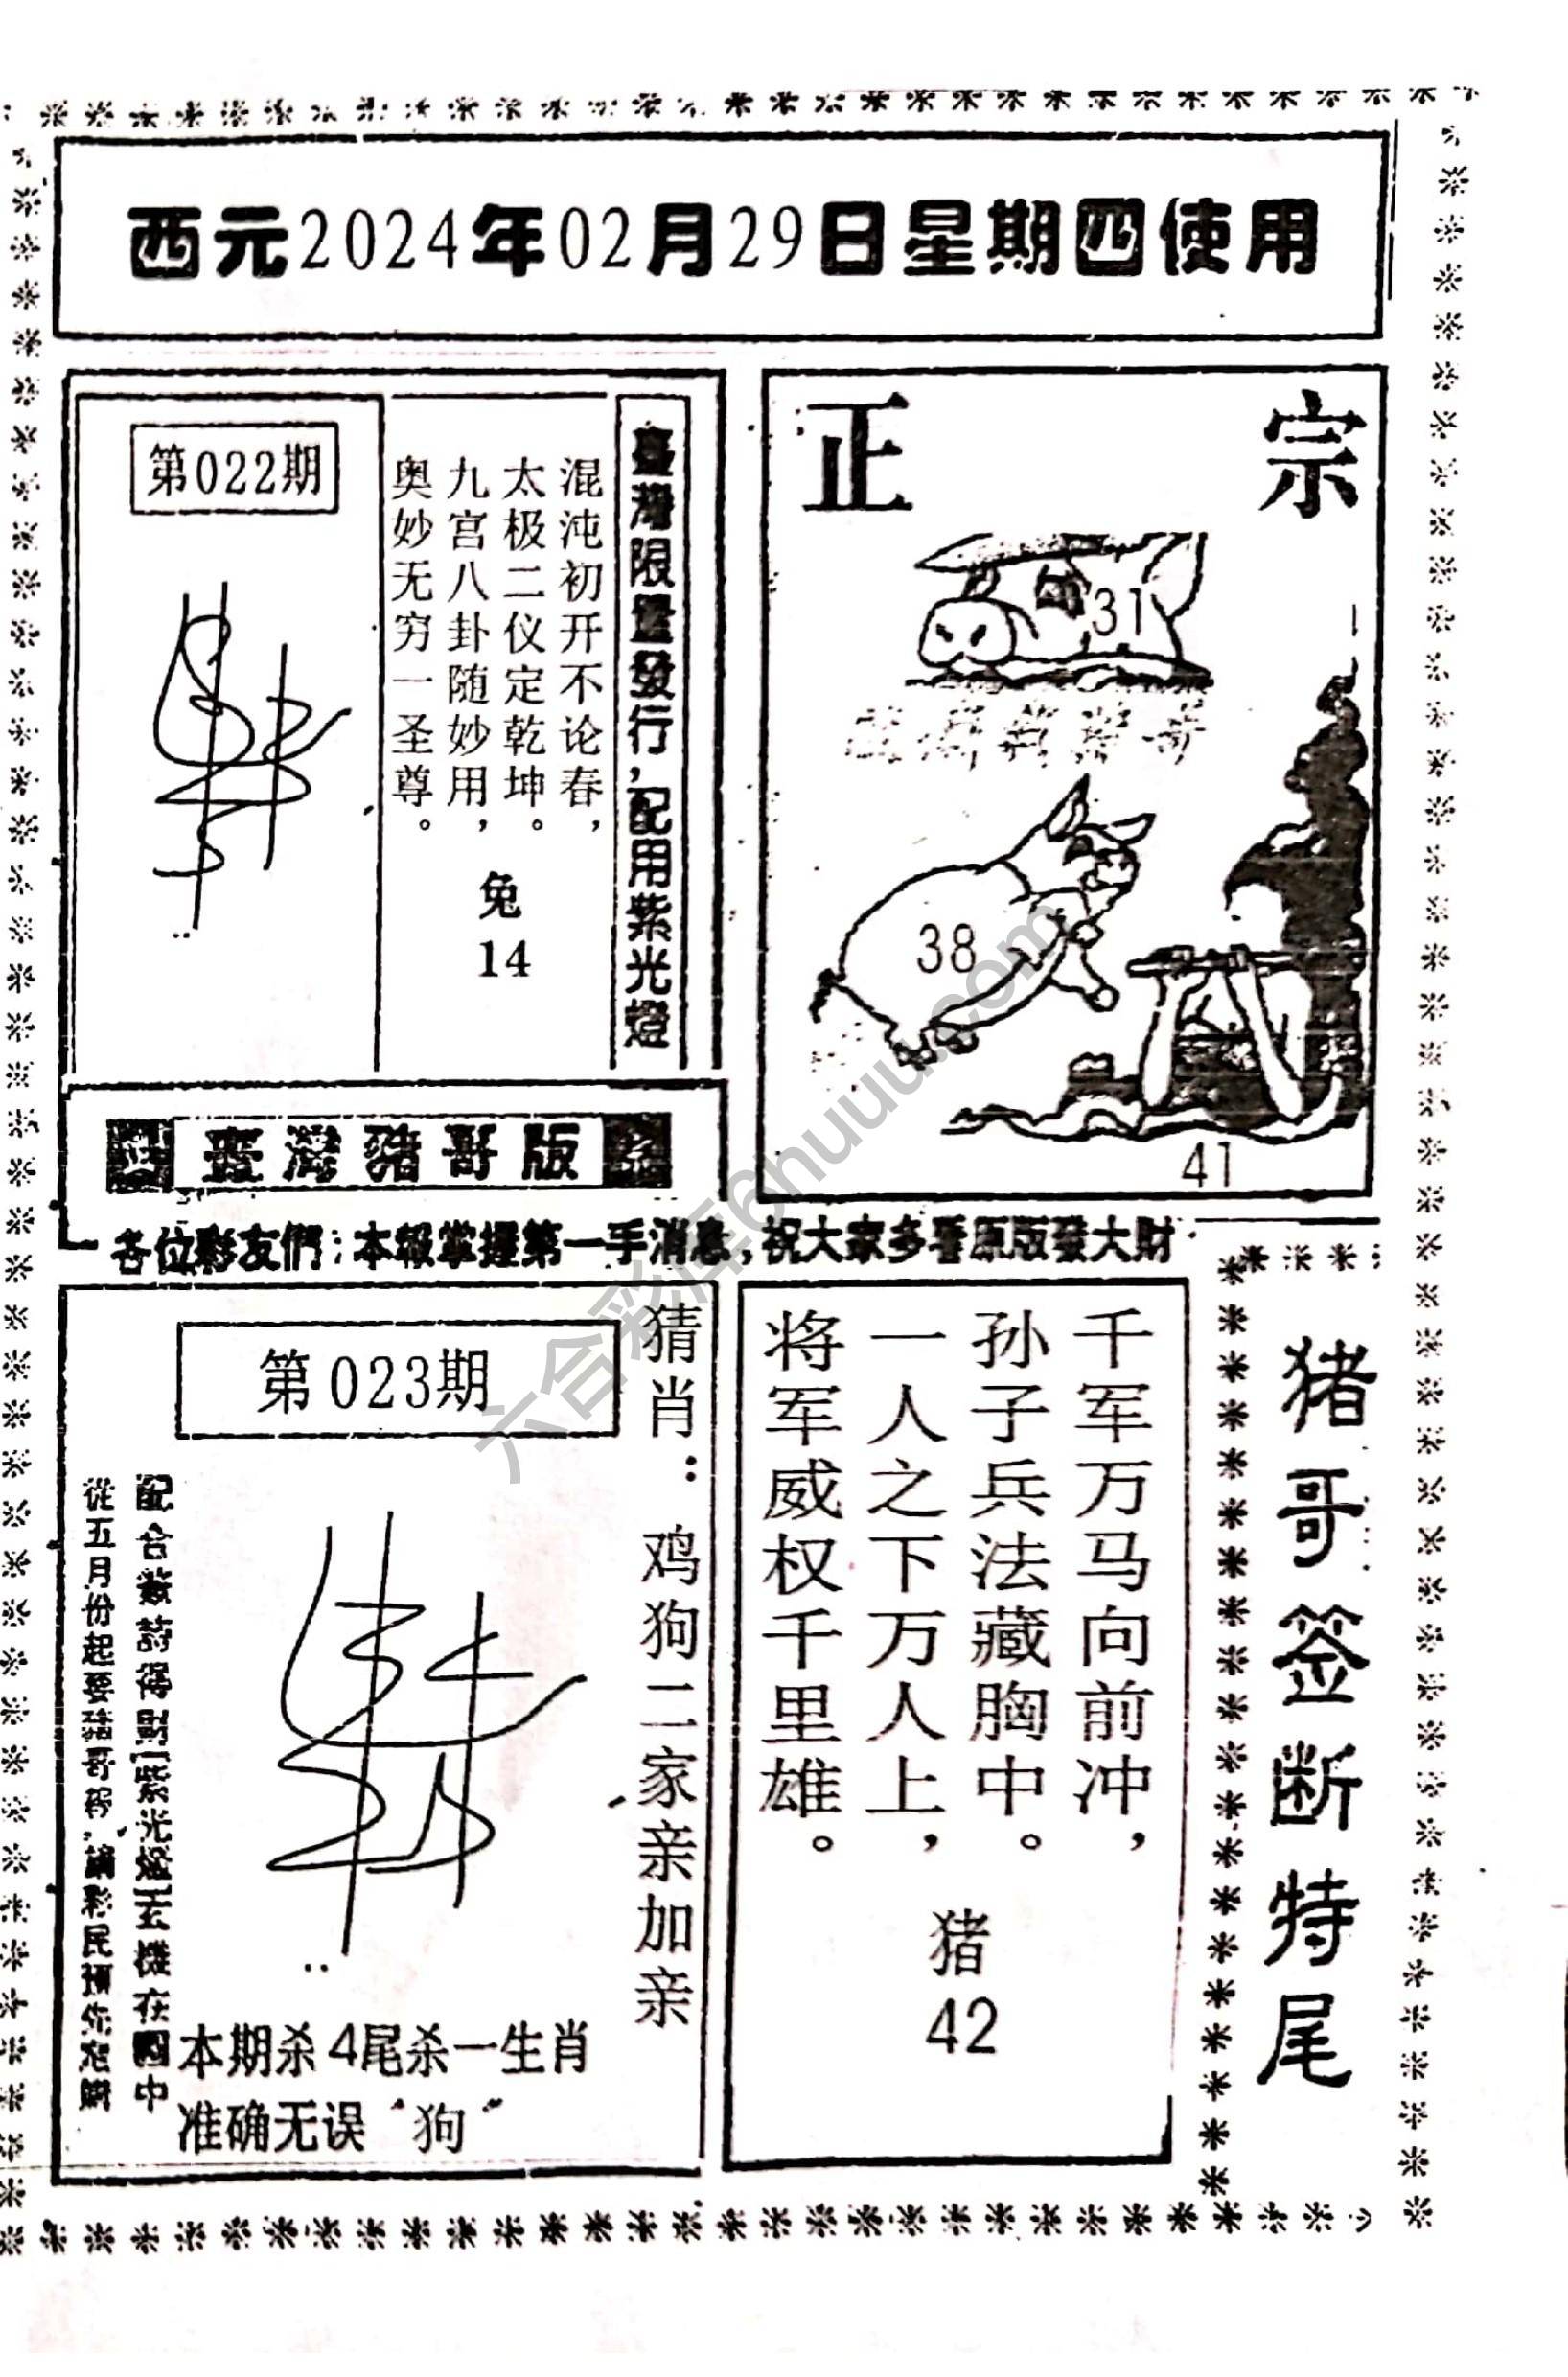 西元2024年02月29日星期四使用
第022期
臺灣限量發行,配用紫光燈
混沌初开不论春,
太极二仪定乾坤。
九宫八卦随妙用,
奥妙无穷一圣尊。
兔
14
正宗
31
38
41
臺灣豬哥版
各位彩友們:本報掌握第一手消息,祝大家多看原版發大財
第023期
猜肖:鸡狗二家亲加亲
從五月份起要豬哥
彩民
配合數詩得
紫光燈
玄機在圖中
本期杀4尾杀一生肖
准确无误“狗”
千军万马向前冲,
孙子兵法藏胸中。
一人之下万人上,
将军威权千里雄。
猪
42
猪哥签断特尾
六合彩库6huuu.com